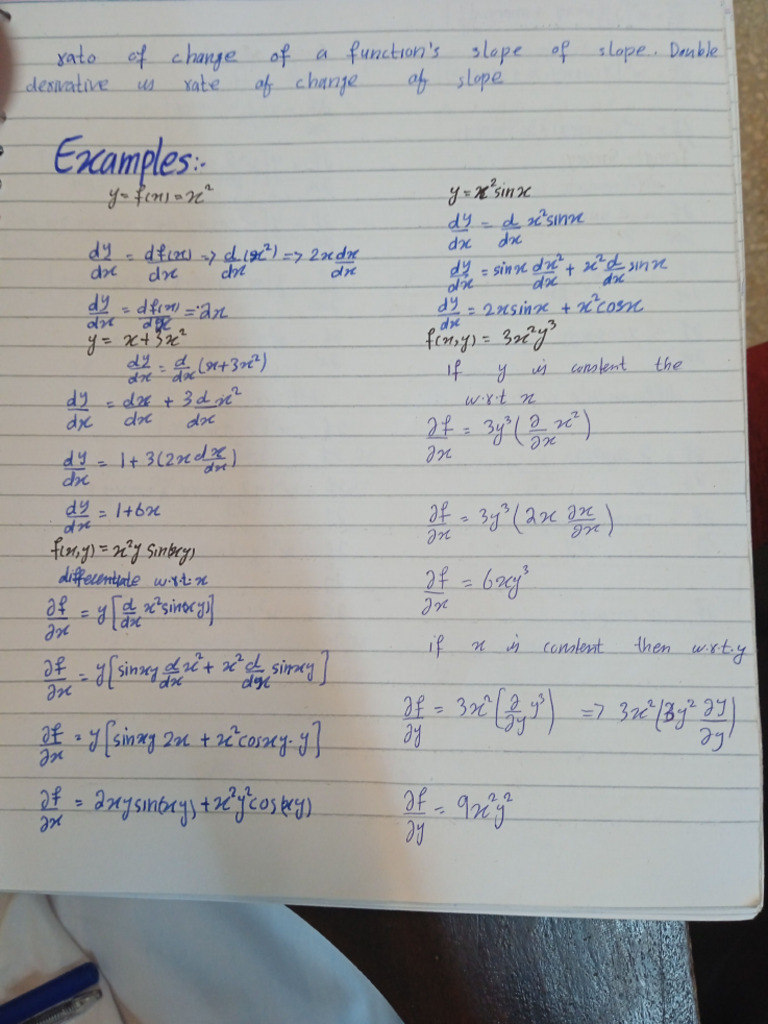 rato of change of a function's slope of slope. Double
derivative is rate of change of slope
Examples:-
y = f(x) = x²
dy/dx = df(x)/dx => d/dx (x²) => 2x dx/dx
dy/dx = df(x)/dx = 2x
y = x+3x²
dy/dx = d/dx (x+3x²)
dy/dx = dx/dx + 3 d/dx x²
dy/dx = 1+3(2x dx/dx)
dy/dx = 1+6x
f(x,y) = x²y sin(xy)
differentiate w.r.t.x
∂f/∂x = y[d/dx x²sin(xy)]
∂f/∂x = y[sinxy d/dx x² + x² d/dx sinxy]
∂f/∂x = y[sinxy 2x + x²cosxy. y]
∂f/∂x = 2xysin(xy) + x²y²cos(xy)
y = x²sinx
dy/dx = d/dx x²sinx
dy/dx = sinx dx²/dx + x² d/dx sinx
dy/dx = 2xsinx + x²cosx
f(x,y) = 3x²y³
if y is constent the
w.r.t x
∂f/∂x = 3y³(∂/∂x x²)
∂f/∂x = 3y³(2x ∂x/∂x)
∂f/∂x = 6xy³
if x is constent then w.r.t.y
∂f/∂y = 3x²[∂/∂y y³) => 3x²(3y² ∂y/∂y)
∂f/∂y = 9x²y²